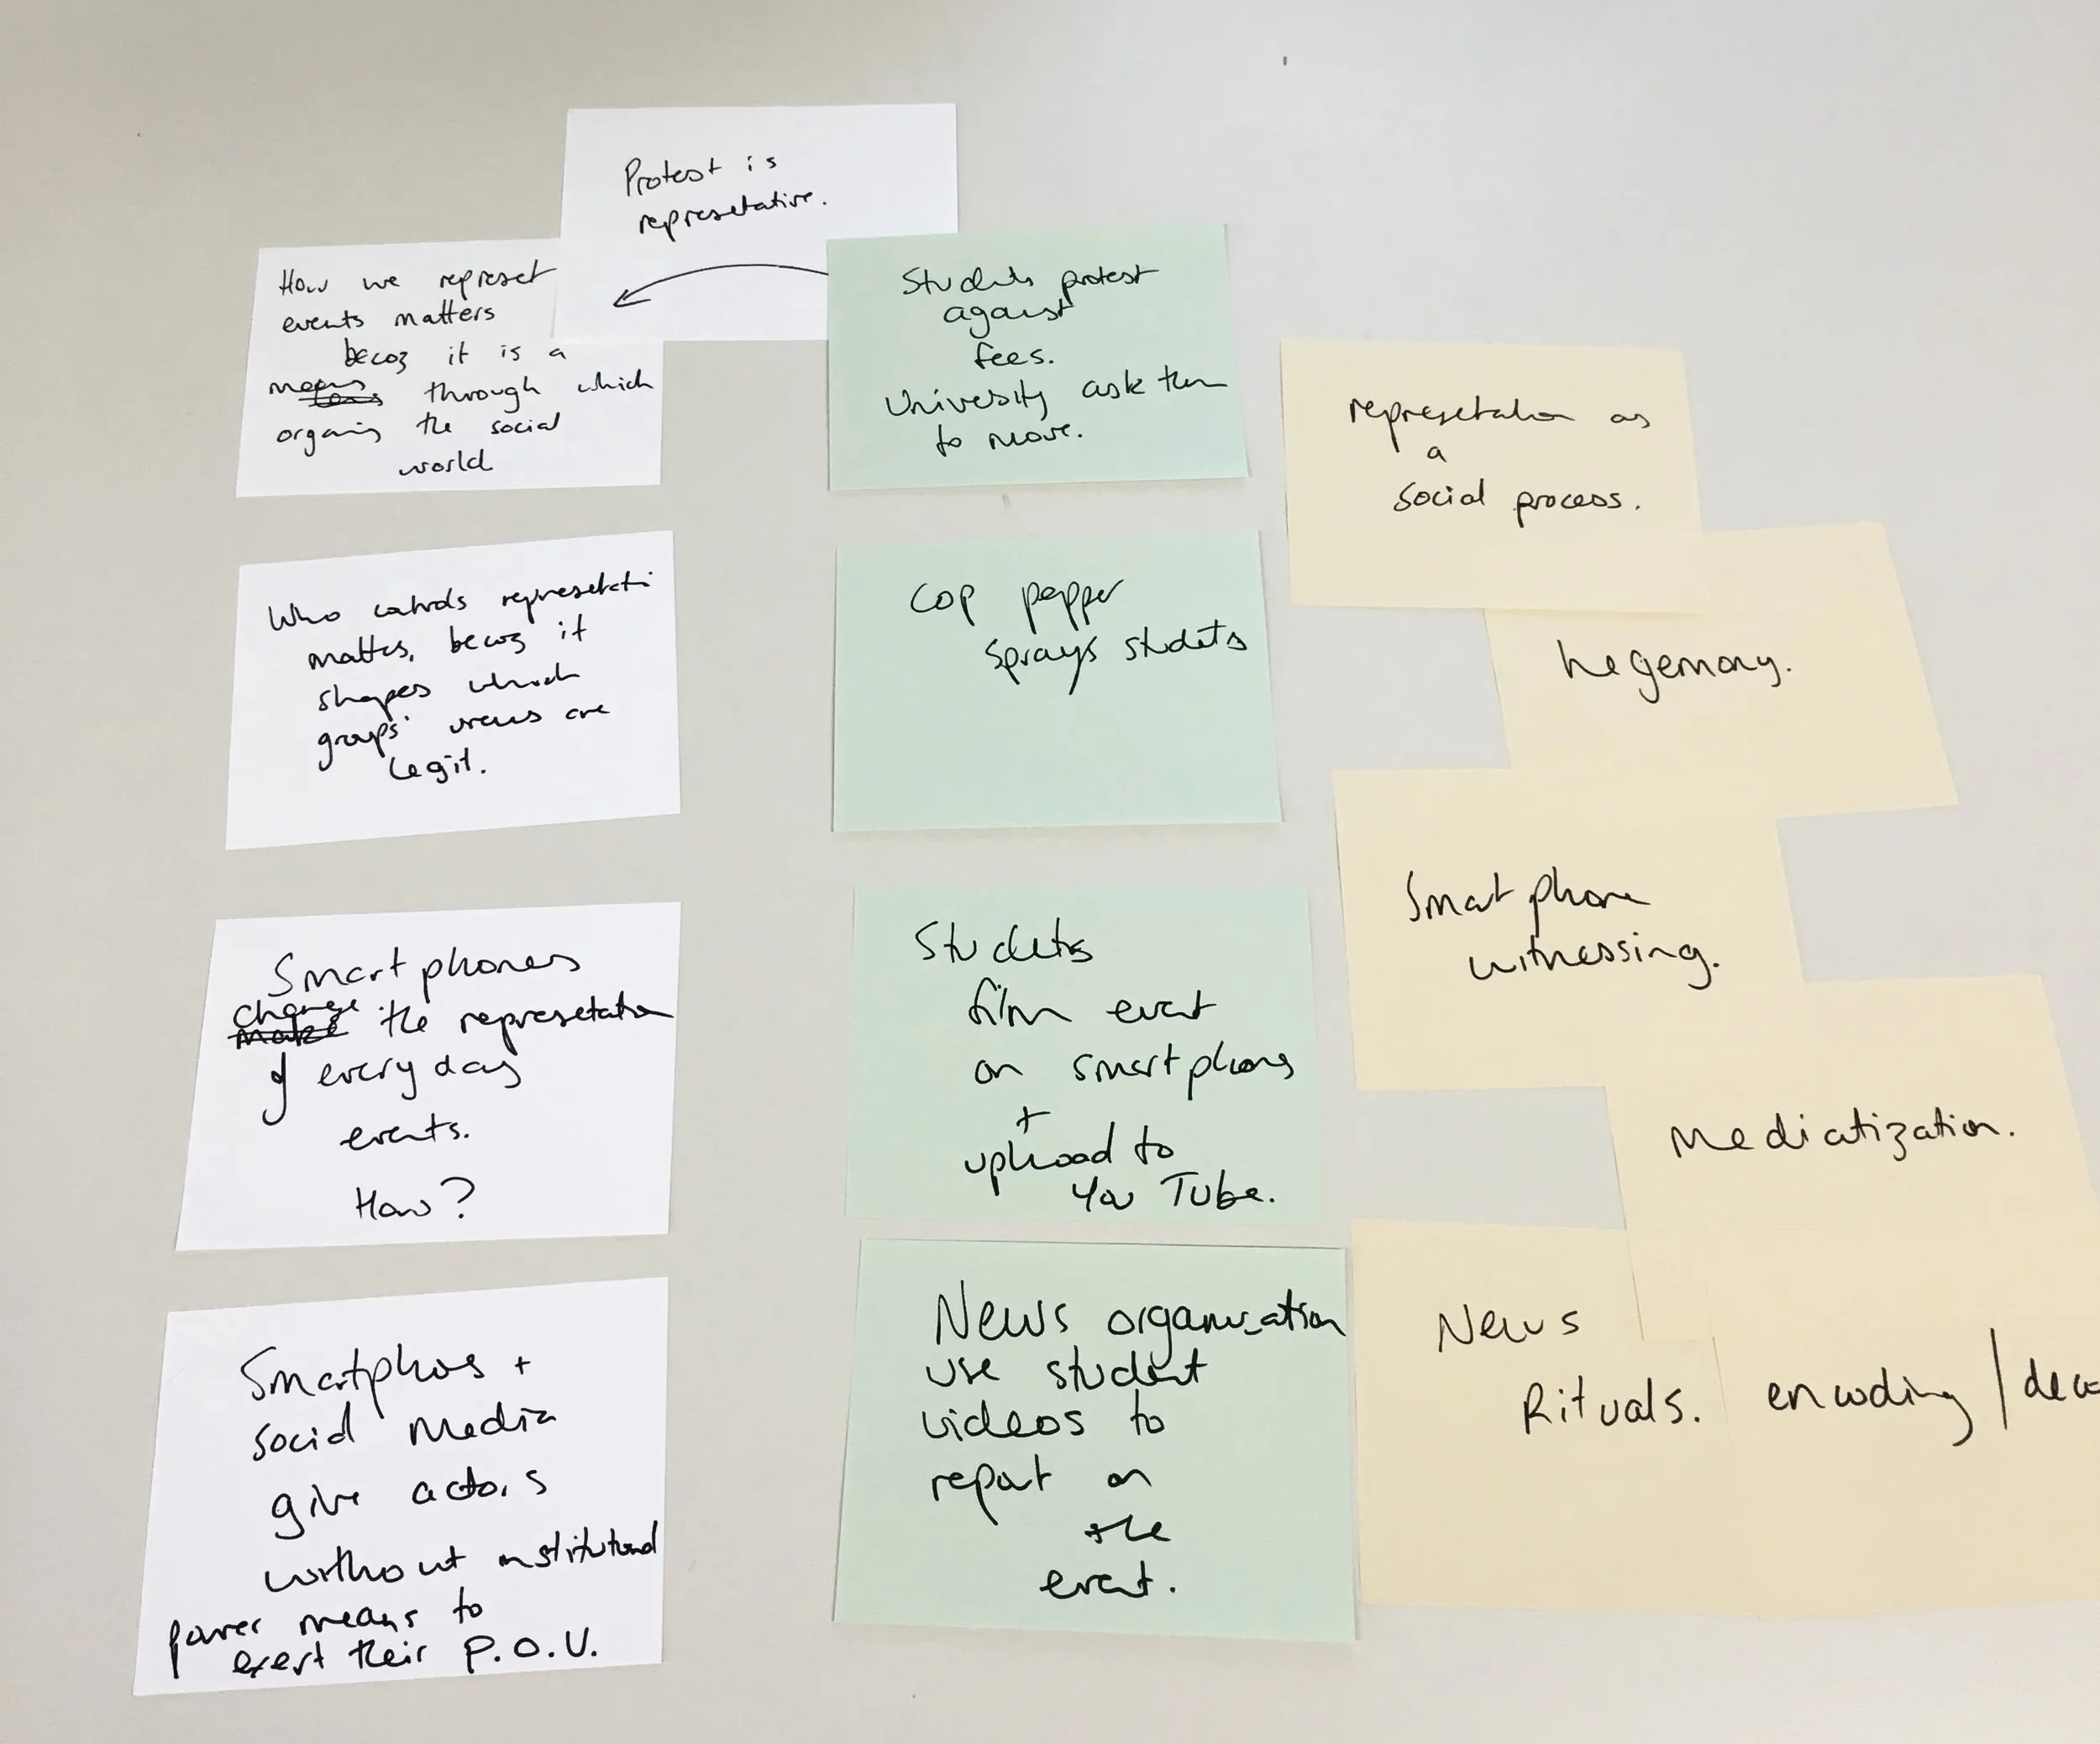 Protest is
represetative.
How we represet
events matters
becoz it is a
means through which
organis the social
world
Who controls represetati
mattes, becoz it
shapes which
groups' views are
legit.
Smart phones
change the represetation
of every day
events.
How?
Smartphos +
social media
give actors
without institutional
power means to
exert their P.O.V.
Students protest
against
fees.
University ask them
to move.
Cop pepper
sprays studets
Studets
film event
on smart phones
+
upload to
You Tube.
News organisation
use student
videos to
report on
the
event.
represetation as
a
social process.
hegemony.
Smart phone
witnessing.
Mediatization.
News
Rituals.
encoding / deco